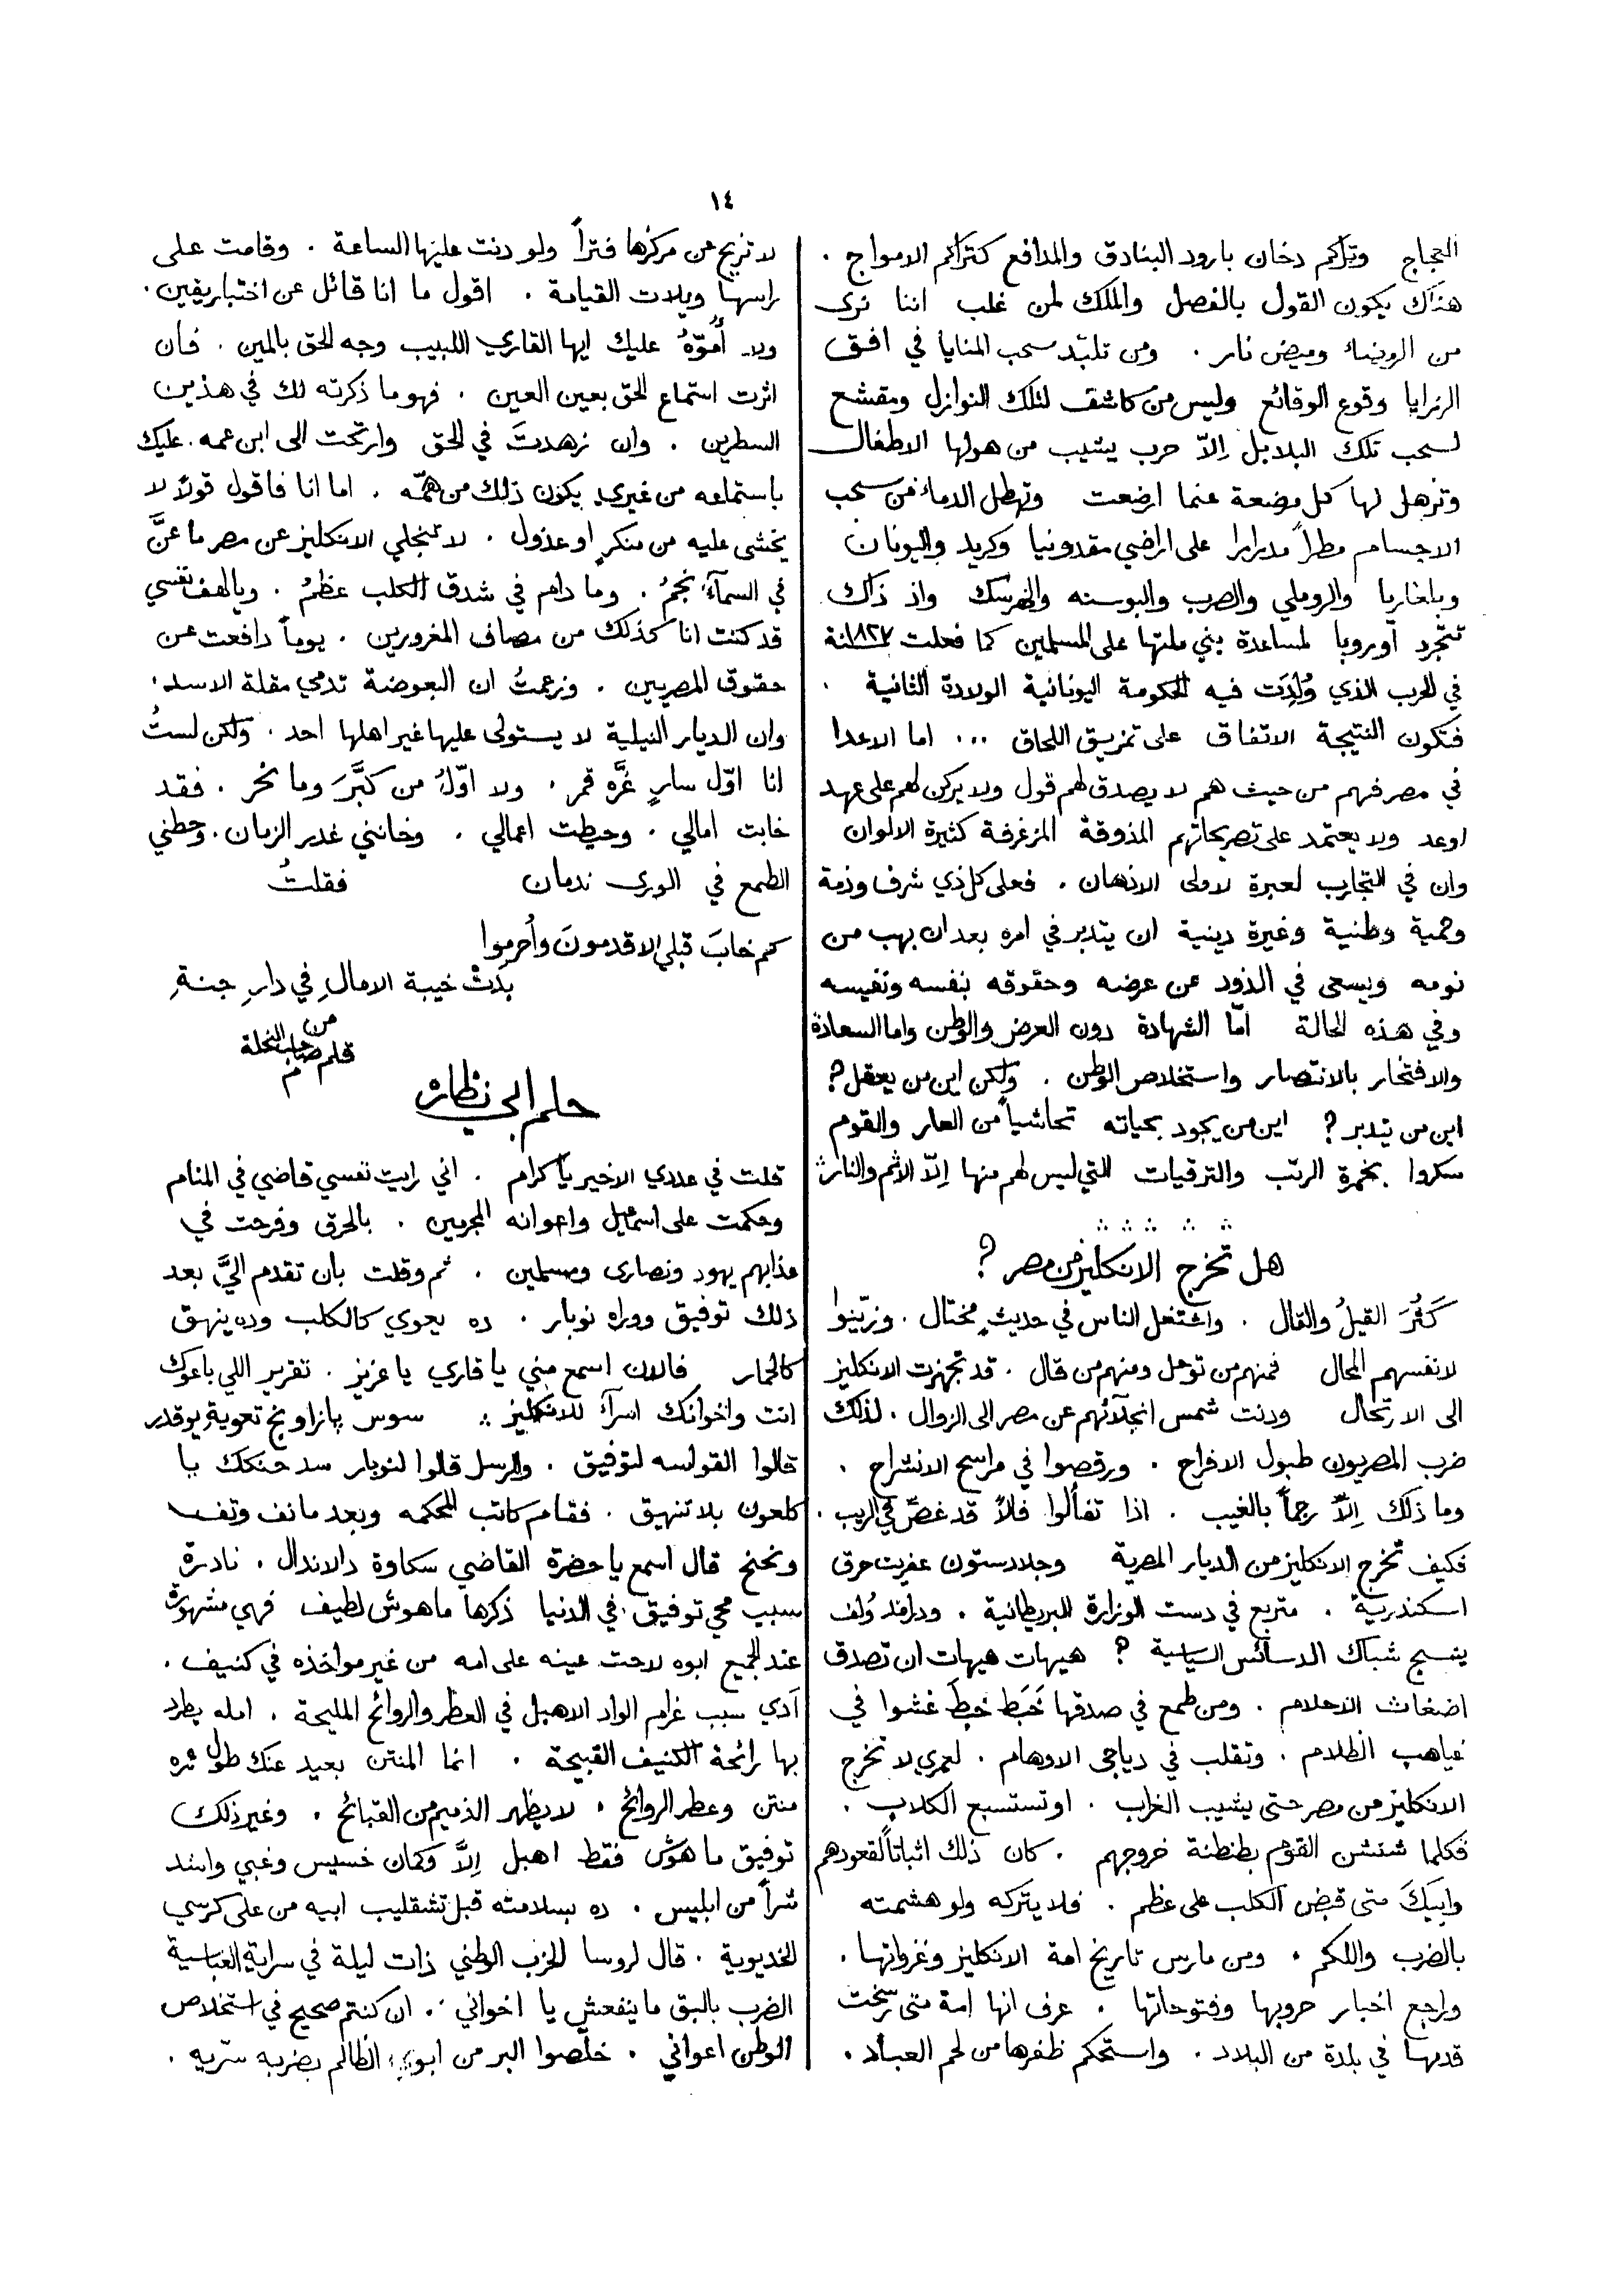 ١٤
العجاج وتراكم دخان بارود البنادق والمدافع كتراكم الامواج .
هنَاك يكون القول بالفصل والملك لمن غلب اننا نرى
من الوميض نار . ومن تلبّد سحب المنايا في افق
الرزايا وقوع الوقائع وليس من كاشف لتلك النوازل ومقشع
لسحب تلك البلابل اِلاّ حرب يشيب من هولها الاطفال
وتذهل لها كل مرضعة عنما ارضعت وتهطل الدماء من سحب
الاجسام مطراً مدرارا على اراضي مقدونيا وكريد واليونان
وبلغاريا والروملي والصرب والبوسنه والهرسك واذ ذاك
تتجّرد أوروبا لمساعدة بني ملتها على المسلمين كما فعلت سنة ١٨٢٧
في الحرب الذي وُلِدَت فيه الحكومة اليونانية الولادة الثانية .
فتكون النتيجة الاتفاق على تمزيق اللحاق ... اما الاعدا
في مصر فهم من حيث هم لا يصدق لهم قول ولا يركن لهم على عهد
اوعد ولا يعتمد على تصريحاتهم المذوقة المزغرفة كثيرة الالوان
وان في التجارب لعبرة لاولى الاذهان . فعلى كل ذي شرف وذمة
وحمية وطنية وغيرة دينية ان يتدبر في امره بعد ان يهب من
نومه ويسعى في الذود عن عرضه وحقوقه بنفسه ونفيسه
وفي هذه الحالة امّا الشهادة دون العرض والوطن واما السعادة
والافتخار بالانتصار واستخلاص الوطن . ولكن اين من يعقل؟
اين من يتدبر؟ اين من يجود بحياته تحاشياً من العار والقوم
سكروا بخمرة الرتب والترقيات التي ليس لهم منها اِلاّ الاثم والنار
هل تخرج الانكليز من مصر؟
كَثُرَ القيلُ والقال . واشتغل الناس في حديثٍ مختال . وزيّنوا
لانفسهم المحال فمنهم من توهل ومنهم من قال . قد تجهزت الانكليز
الى الارتحال ودنت شمس انجلآئهم عن مصر الى الزوال . لذلك
ضرب المصريون طبول الافراح . ورقصوا في مراسح الانشراح .
وما ذلك اِلاّ رجماً بالغيب . اذا تفألوا فلأً قد غصّ في الريب .
فكيف تخرج الانكليز من الديار المصرية وجلادستون عفريت حرق
اسكندرية . متربع في دست الوزارة البريطانية . ودرامند وُلف
ينسج شباك الدسائس السياسية ؟ هيهات هيهات ان تصدق
اضغاث الاحلام . ومن طمع في صدقها خَبَط خبطَ عشوا في
غياهب الظلام . وتقلب في دياجى الاوهام . لعمري لا تخرج
الانكليز من مصر حتى يشيب الغراب . او تستسبع الكلاب .
فكلما شنشن القوم بطنطنة خروجهم . كان ذلك اثباتاً لقعودهم
وابيكَ متى قبض الكلب على عظم . فلا يتركه ولو هشمته
بالضرب واللكم . ومن مارس تاريخ امة الانكليز وغزواتها .
وراجع اخبار حروبها وفتوحاتها . عرف انها امة متى رسخت
قدمها في بلدة من البلاد . واستحكم ظفرها من لحم العباد .
لا تزيح من مركزها فتراً ولو دنت عليها الساعة . وقامت على
راسها ويلات القيامة . اقول ما انا قائل عن اختبار يقين .
ولا أُموّهُ عليك ايها القاري اللبيب وجه الحق بالمين . فأن
اثرت استماع الحق بعين العين . فهو ما ذكرته لك في هذين
السطرين . وان زهدتَ في الحق وارتحت الى ابن عمه . عليك
باستماعه من غيري يكون ذلك من همّه . اما انا فاقول قولاً لا
يخشى عليه من منكرٍ او عذول . لا تنجلي الانكليز عن مصر ما عنَّ
في السمآءِ نجمُ . وما دام في شدق الكلب عظمُ . ويالهف نفسي
قد كنت انا كذلك من مصاف المغرورين . يوماً دافعت عن
حقوق المصريين . وزعمتُ ان البعوضة تدمي مقلة الاسد .
وان الديار النيلية لا يستولى عليها غير اهلها احد . ولكن لستُ
انا اوّل سارٍ غرَّه قمر . ولا اوّلُ من كبَّرَ وما نحر . فقد
خابت امالي . وحبطت اعمالي . وخانني غدير الزمان . وحطني
الطمع في الورى ندمان فقلتُ
كم خابَ قبلي الاقدمونَ وأُحرِموا
بِدَتْ خيبة الامالِ في دارِ جنةِ
من
قلم صاحب النحلة
حلم ابي نظاره
قلت في عددي الاخير يا كرام . اني رايت نفسي قاضي في المنام
وحكمت على اسمعيل واعوانه المجرمين . بالحرق وفرحت في
عذابهم يهود ونصارى ومسلمين . ثم وقلت بان تقدم اليَّ بعد
ذلك توفيق ووراه نوبار . ده يعوي كالكلب وده ينهق
كالحمار فالان اسمع مني يا قاري يا عزيز . تقرير اللي باعوك
انت واخوانك اسرآ للانكليز سوس يازاونج تعويق يوقدر
قالوا القولسه لتوفيق . والرسل قالوا لنوبار سد حنكك يا
كلعون بلا تنهيق . فقام كاتب المحكمه وبعد ما نف وتف
ونحنح قال اسمع يا حضرة القاضي سكاوة دالاندال . نادرة
سبب محي توفيق في الدنيا ذكرها ماهوش لطيف فهي مشهورة
عند الجميع ابوه لاحت عينه على امه من غير مواخذه في كنيف .
آدي سبب غرام الواد الاهبل في العطر والروائح المليحة . امله يطرد
بها رائحة الكنيف القبيحة . انما المنتن بعيد عنك طول عمره
منتن وعطر الروائح . لا يطهر الذميم من القبائح . وغير ذلك
توفيق ماهوش فقط اهبل اِلاَّ وكمان خسيس وغبي واشد
شراً من ابليس . ده بسلامته قبل تشقليب ابيه من على كرسي
الخديوية . قال لروسا الحزب الوطني ذات ليلة في سراية العباسية
الضرب بالبق ما ينفعش يا اخواني . ان كنتم صحيح في استخلاص
الوطن اعواني . خلّصوا البر من ابويه الظالم بضربه سرّيه .